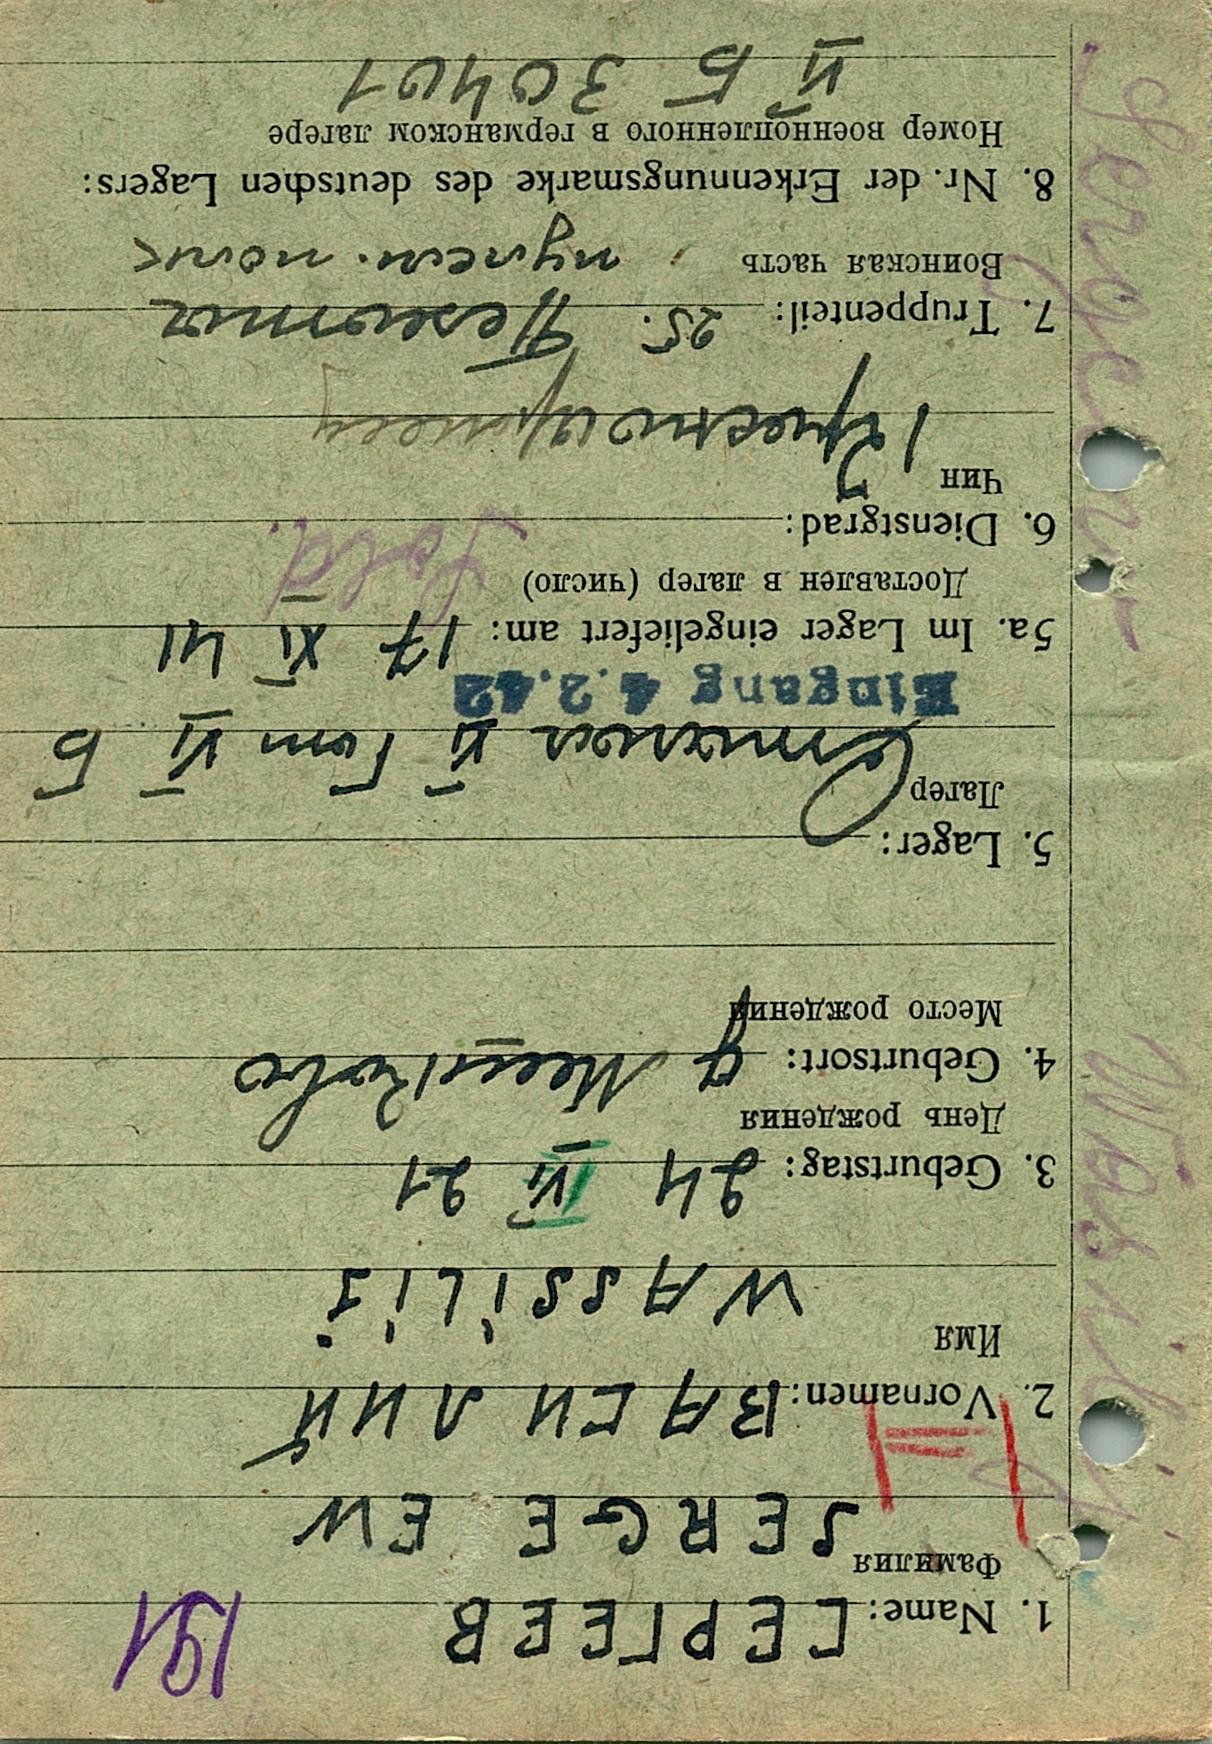 191
1. Name: СЕРГЕЕВ
Фамилия
SERGEEW
2. Vornamen: ВАСИЛИЙ
Имя
WASSILIJ
3. Geburtstag: 24 VI 21
День рождения
4. Geburtsort: д
Место рождения
5. Lager:
Лагер
VI Б
Eingang 4.2.42
5a. Im Lager eingeliefert am: 17 XI 41
Доставлен в лагер (число)
Sold.
6. Dienstgrad:
Чин
7. Truppenteil: 25.
Воинская часть пулем. полк
8. Nr. der Erkennungsmarke des deutschen Lagers:
Номер военнопленного в германском лагере
VI Б 30401
Wasilij
Sergeew